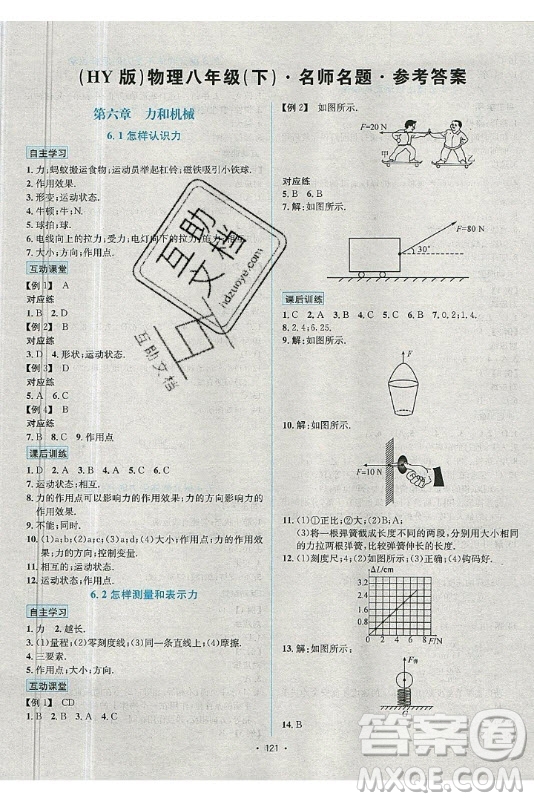 (HY 版)物理八年级(下)·名师名题·参考答案
第六章 力和机械
6.1 怎样认识力
自主学习
1. 力;蚂蚁搬运食物;运动员举起杠铃;磁铁吸引小铁球.
2. 作用效果.
3. 形变;运动状态.
4. 牛顿;牛;N.
5. 球拍;球.
6. 电线向上的拉力;受力;电灯向下的拉力;施力;相同.
7. 大小;方向;作用点.
互动课堂
【例 1】 A
对应练
1. B 2. D
【例 2】
对应练
3. D 4. 形状;运动状态.
【例 3】
对应练
5. A 6. C
【例 4】 B
对应练
7. B 8. C 9. 作用点
课后训练
1. D 2. A 3. D 4. C 5. B 6. A 7. D
8. 力的作用点可以影响力的作用效果;力的方向可以影响力的作用效果.
9. 不能;同时.
10. (1)a;b;(2)a;c;(3)a;d;(4)大小;作用点;方向;力的作用点;方向;控制变量.
11. 相互的;运动状态.
12. 作用点;大小;方向.
6.2 怎样测量和表示力
自主学习
1. 力 2. 越长.
3. (1)量程;(2)零刻度线;(3)同一条直线上;(4)摩擦.
4. 三要素.
5. 作用点;大小;方向.
互动课堂
【例 1】 CD
1. B 2. B 3. A 4. D
【例 2】 如图所示.
F=20 N
甲
对应练
5. B 6. B
7. 解:如图所示.
F=80 N
30°
课后训练
1. B 2. C 3. D 4. B 5. A 6. B 7. 0,2;1.4.
8. 2.4;6.25.
9. 解:如图所示.
F
10. 解:如图所示.
F=10 N
11. (1)①正比;②大;(2)B;A;
(3)将一根弹簧截成长度不同的两段,分别用相同的力拉两根弹簧,比较伸长量.
12. (1)刻度尺;(2)如图所示;(3)正确;(4)钩码好.
ΔL/cm
3.2
2.4
1.6
0.8
0 2 4 6 8 F/N
13. 解:如图所示.
F弹
14. B
· 121 ·
互助文档
hdzuoye.com
互助文档
答案圈
MXQE.COM